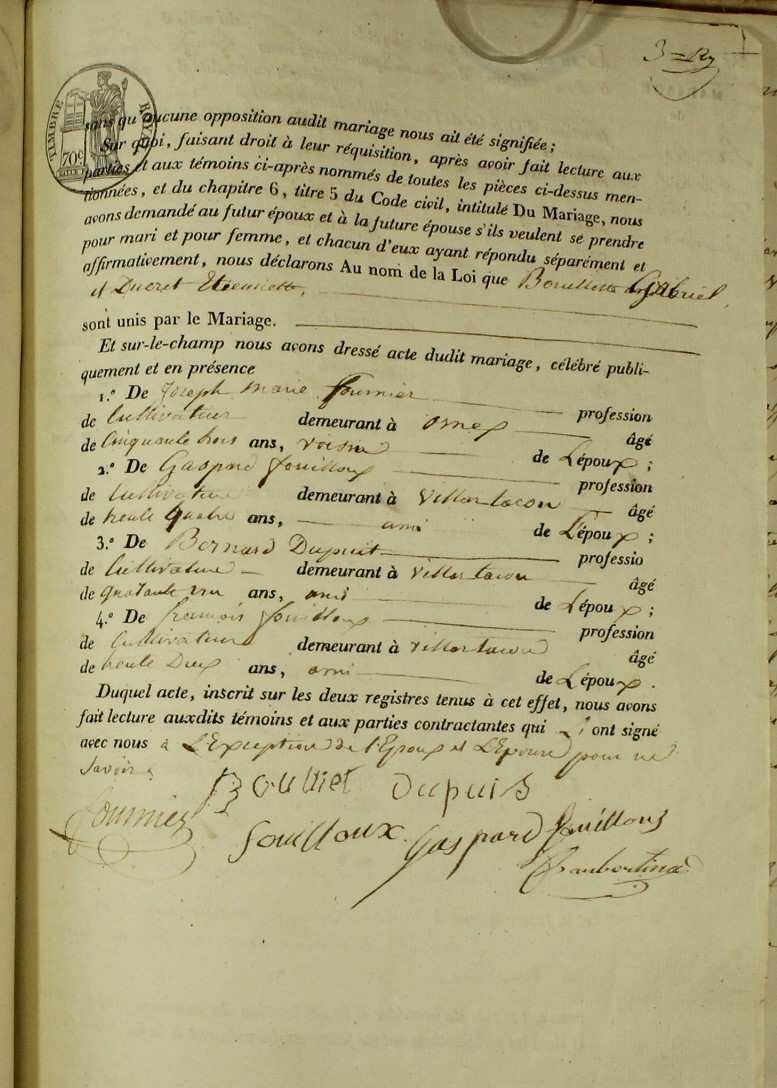 3 = Ry
TIMBRE ROYAL
70 c
sans qu'aucune opposition audit mariage nous ait été signifiée ;
Sur quoi, faisant droit à leur réquisition, après avoir fait lecture aux
parties et aux témoins ci-après nommés de toutes les pièces ci-dessus men-
tionnées, et du chapitre 6, titre 5 du Code civil, intitulé Du Mariage, nous
avons demandé au futur époux et à la future épouse s'ils veulent se prendre
pour mari et pour femme, et chacun d'eux ayant répondu séparément et
affirmativement, nous déclarons Au nom de la Loi que Gabriel
et Ducret Etiennette
sont unis par le Mariage.
Et sur-le-champ nous avons dressé acte dudit mariage, célébré publi-
quement et en présence
1.° De Joseph Marie fournier profession
de Cultivateur demeurant à ornex âgé
de Cinquante trois ans, voisin de L'époux ;
2.° De Gaspard fouilloux profession
de Cultivateur demeurant à villartacon âgé
de trente quatre ans, ami de L'époux ;
3.° De Bernard Dupuit profession
de Cultivateur demeurant à villartacon âgé
de quarante un ans, ami de L'époux ;
4.° De françois fouilloux profession
de Cultivateur demeurant à villartacon âgé
de trente Deux ans, ami de L'époux.
Duquel acte, inscrit sur les deux registres tenus à cet effet, nous avons
fait lecture auxdits témoins et aux parties contractantes qui ont signé
avec nous à L'Exception de l'Epoux et L'Epouse pour ne
Savoir.
Boulliet Dupuis
fournier
fouilloux Gaspard fouilloux